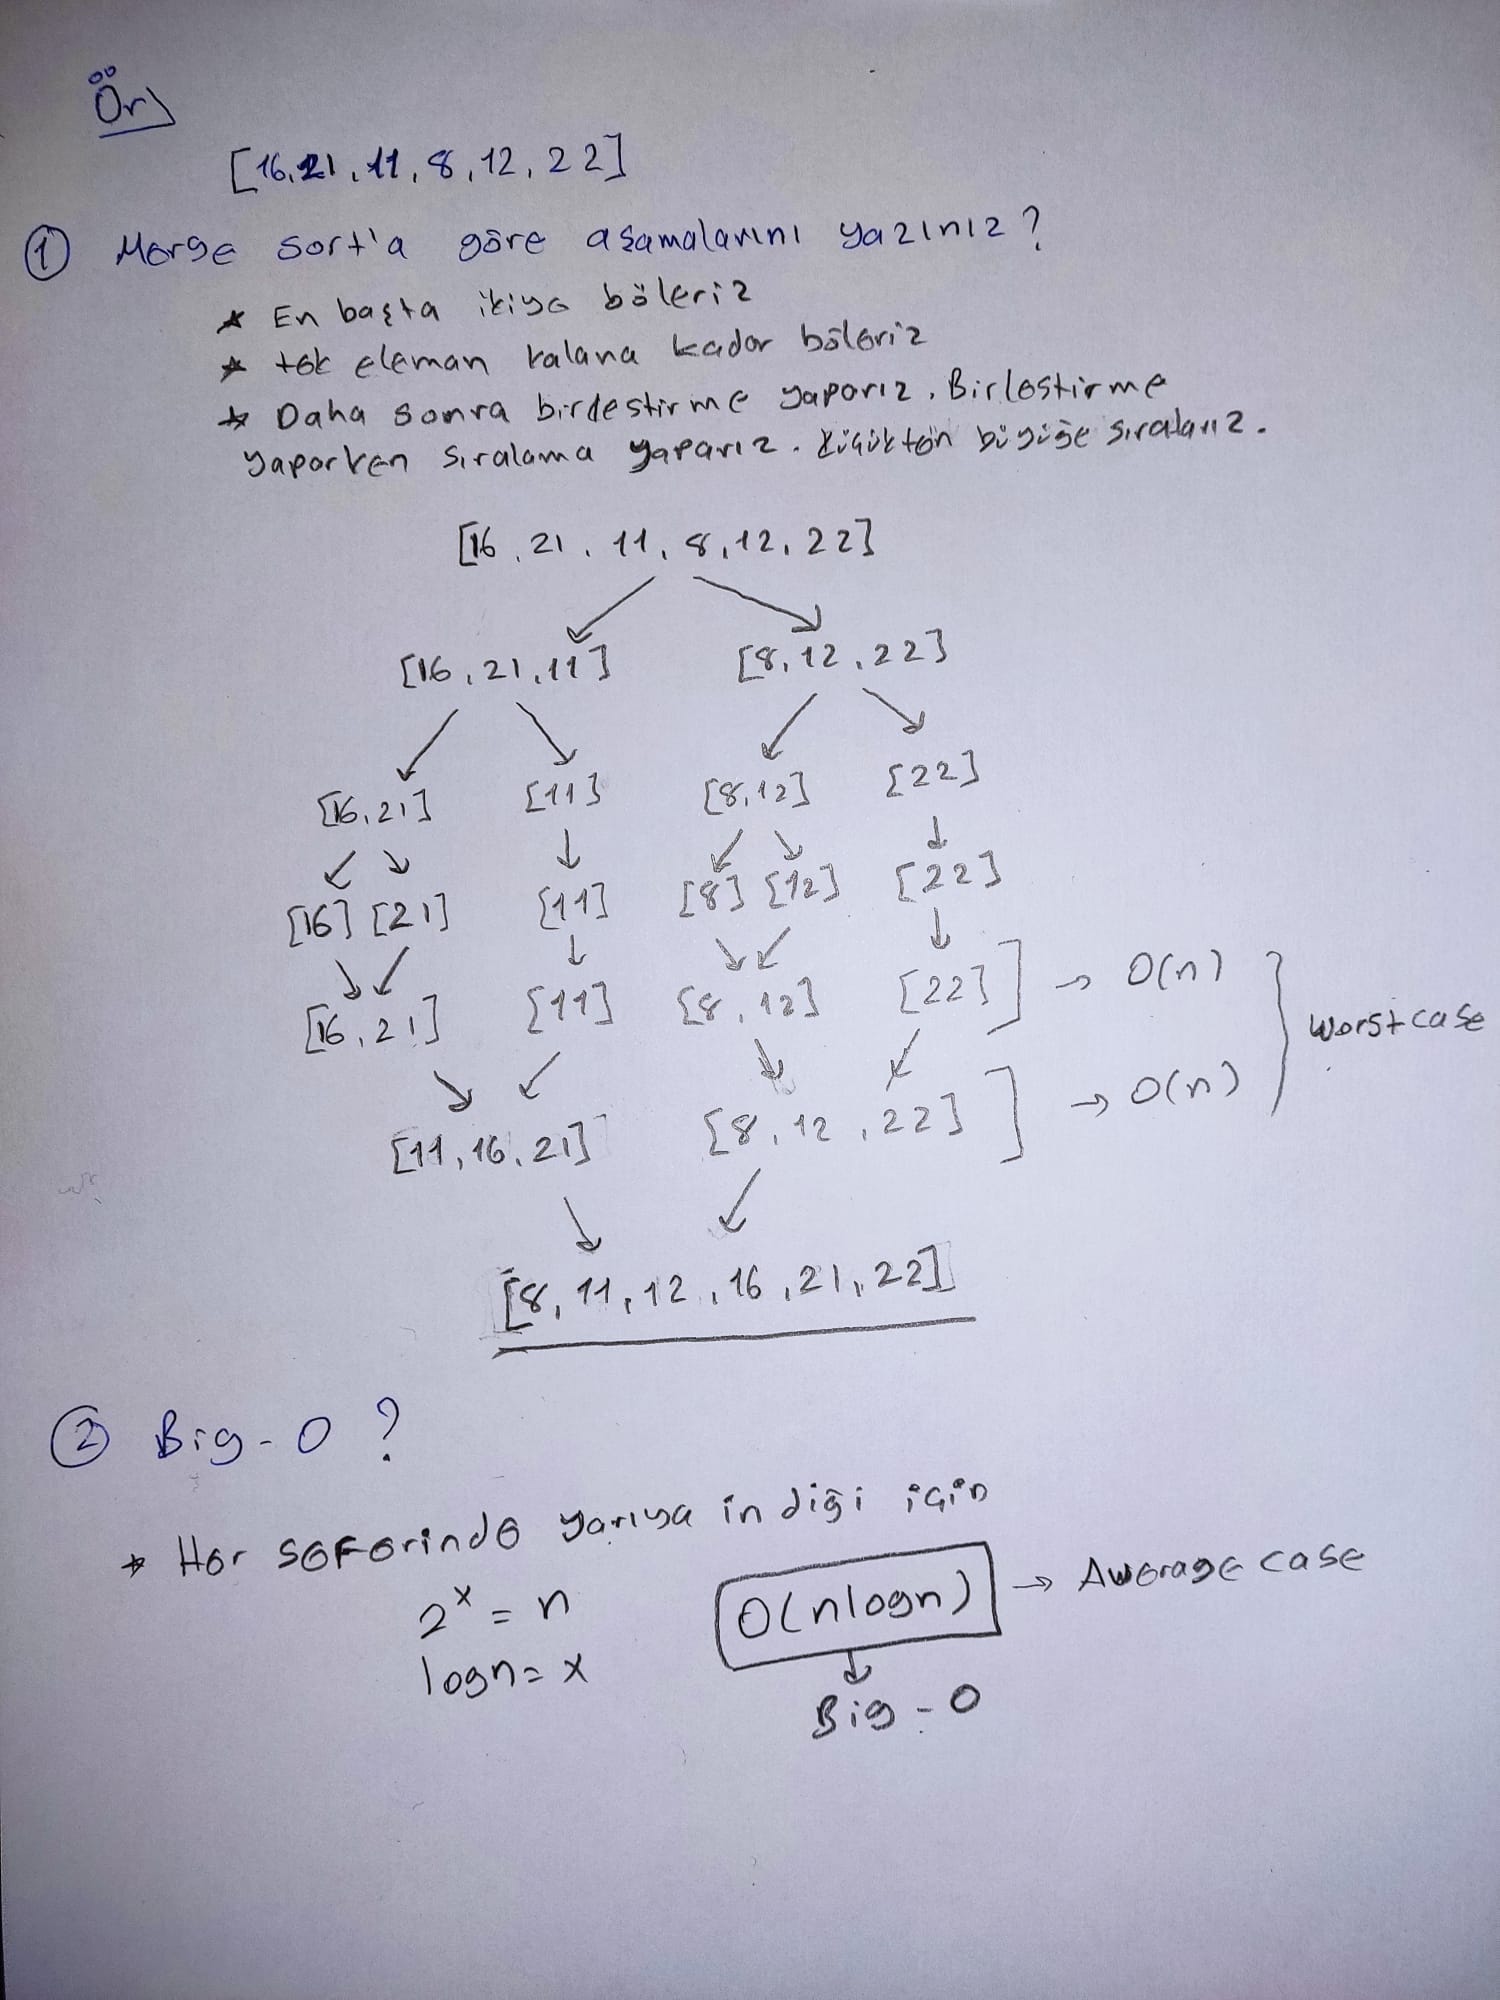 Ör)
[16, 21, 11, 8, 12, 22]
① Merge sort'a göre aşamalarını yazınız?
* En başta ikiye böleriz
* tek eleman kalana kadar böleriz
* Daha sonra birleştirme yaparız. Birleştirme
yaparken sıralama yaparız. Küçükten büyüğe sıralarız.
[16, 21, 11, 8, 12, 22]
[16, 21, 11] [8, 12, 22]
[16, 21] [11] [8, 12] [22]
[16] [21] [11] [8] [12] [22]
[16, 21] [11] [8, 12] [22] ] → O(n)
worst case
[11, 16, 21] [8, 12, 22] ] → O(n)
[8, 11, 12, 16, 21, 22]
② Big-O ?
* Her seferinde yarıya indiği için
2^x = n O(nlogn) → Awerage case
logn = x
Big-O